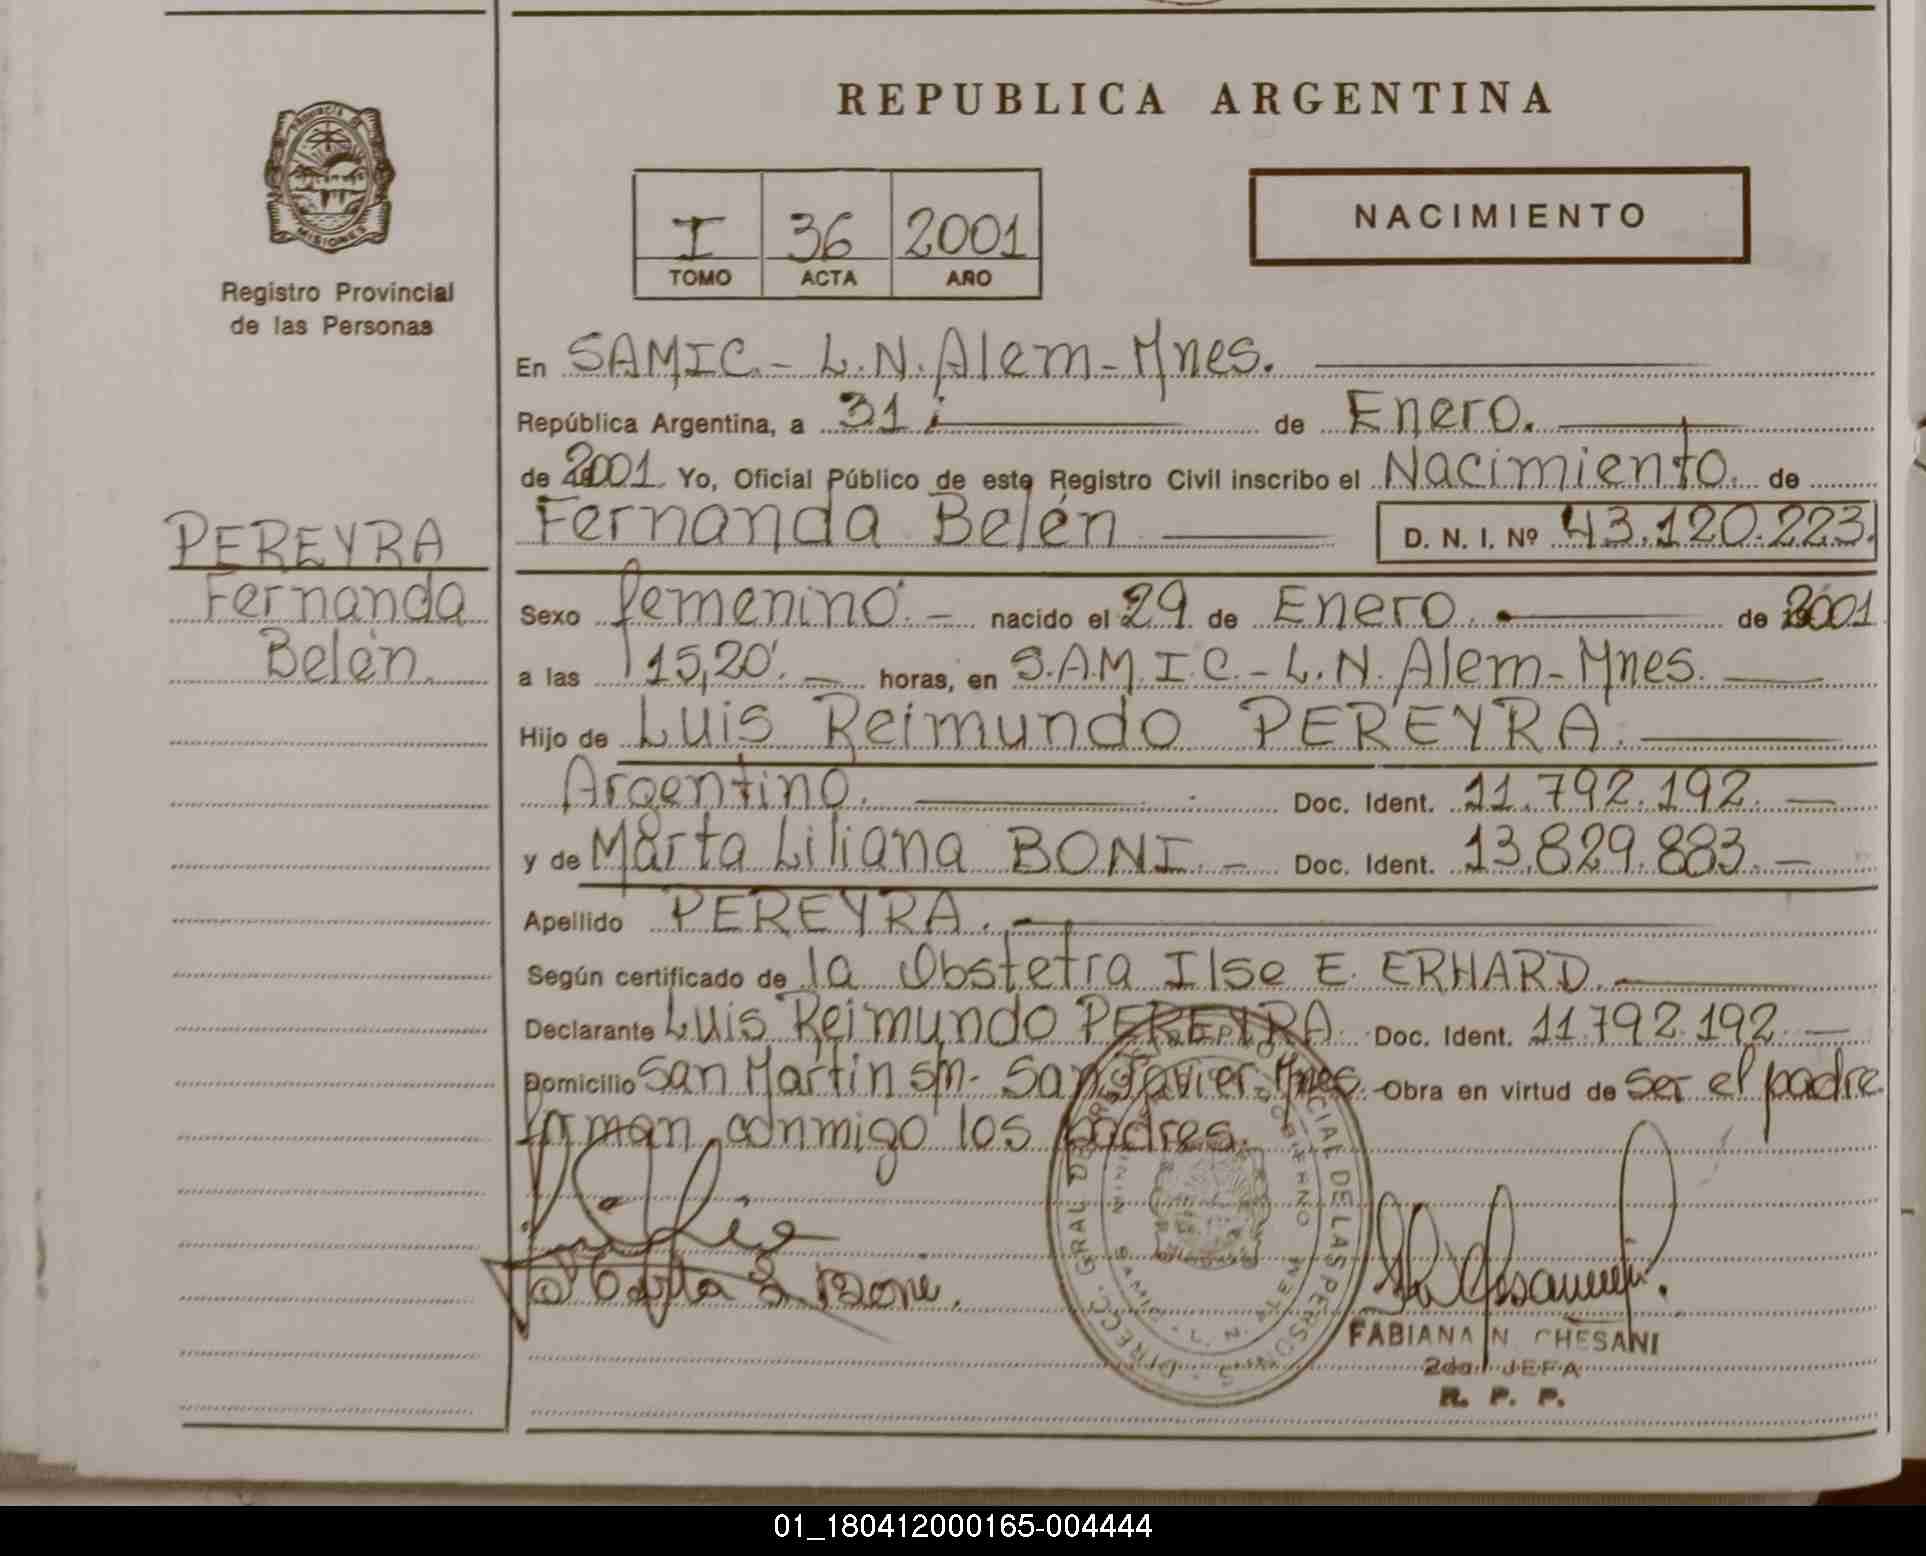 REPUBLICA ARGENTINA
PROVINCIA DE
MISIONES
Registro Provincial
de las Personas
I 36 2001
TOMO ACTA AÑO
NACIMIENTO
En SAMIC.- L.N.Alem-Mnes.
República Argentina, a 31 de Enero.
de 2001. Yo, Oficial Público de este Registro Civil inscribo el Nacimiento. de
Fernanda Belén D. N. I. Nº 43.120.223.
PEREYRA
Fernanda
Belén.
Sexo femenino.- nacido el 29 de Enero. de 2001
a las 15,20'. horas, en S.A.M.I.C.-L.N.Alem-Mnes.
Hijo de Luis Reimundo PEREYRA.
Argentino. Doc. Ident. 11.792.192.
y de Marta Liliana BONI.- Doc. Ident. 13.829.883.-
Apellido PEREYRA.
Según certificado de la Obstetra Ilse E. ERHARD.
Declarante Luis Reimundo PEREYRA. Doc. Ident. 11.792.192.-
Domicilio San Martín s/n.- San Javier Mnes.- Obra en virtud de ser el padre
firman conmigo los padres.
DIRECC. GRAL DE LAS PERSONAS
L. N. ALEM
Marta L Boni.
FABIANA N. CHESANI
2da. JEFA
R. P. P.
01_180412000165-004444